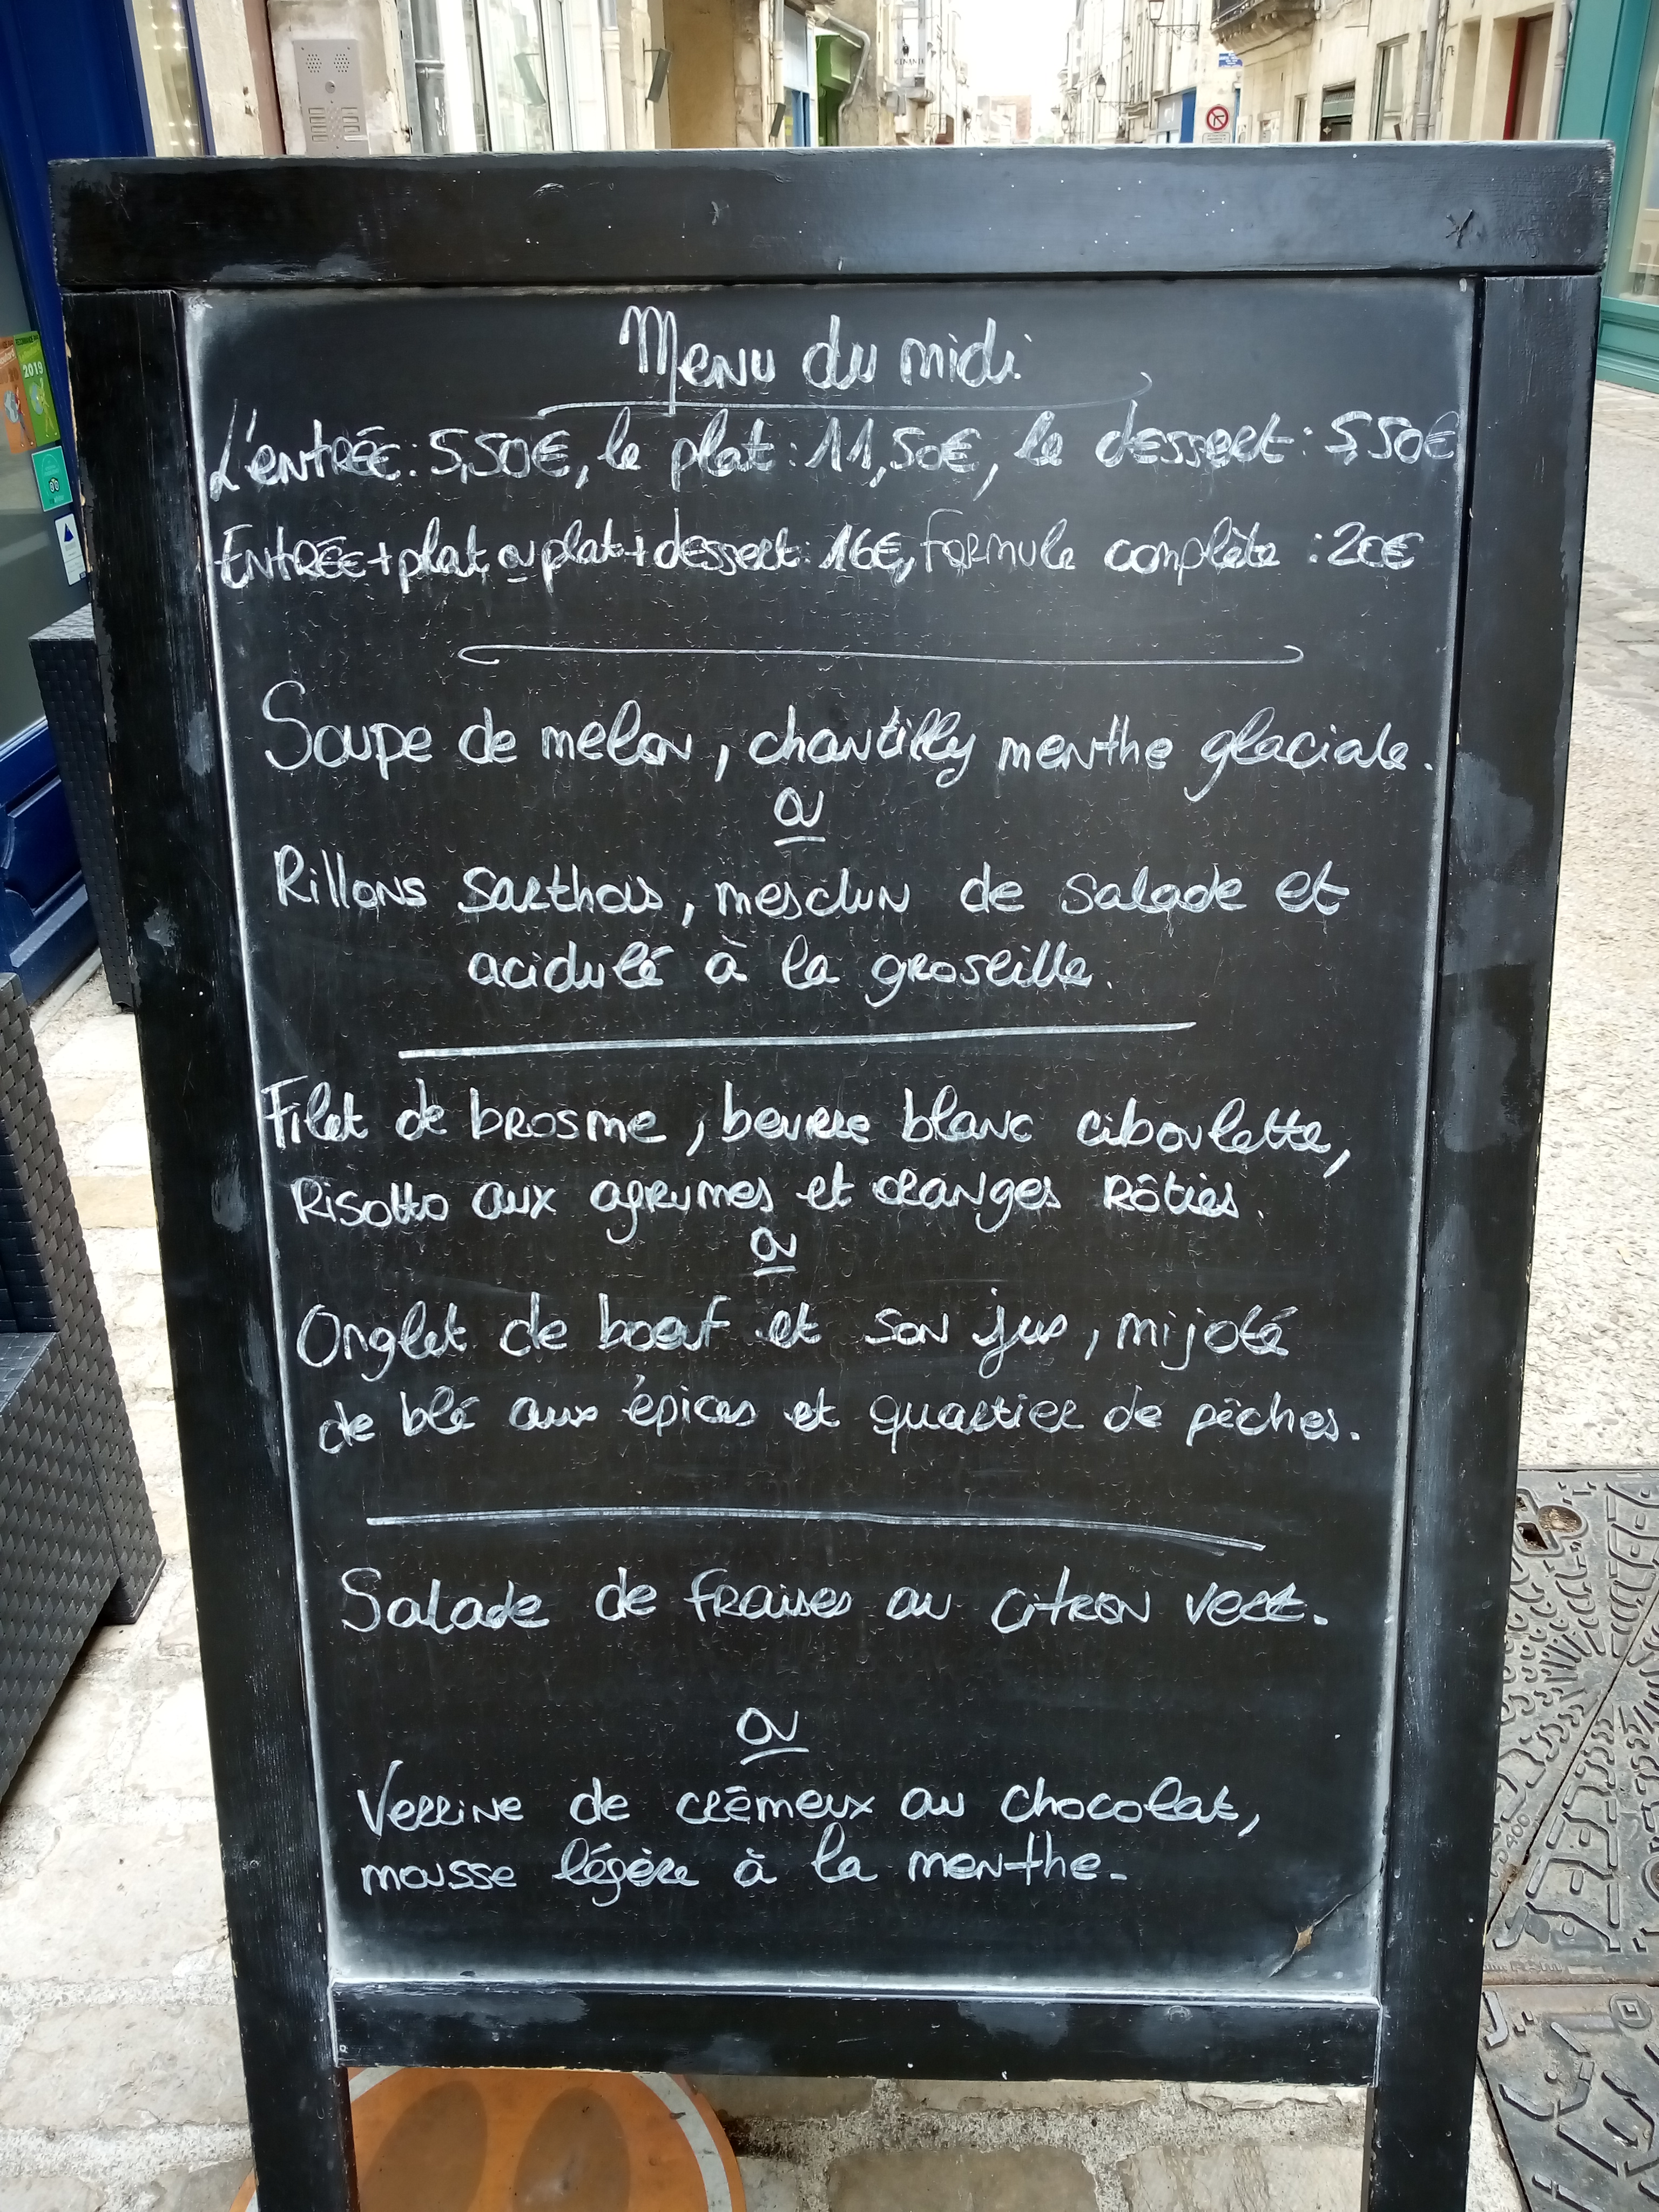 2019
Menu du midi
L'entrée: 5,50€, le plat: 11,50€, le dessert: 5,50€
Entrée+plat ou plat+dessert: 16€, Formule complète : 20€
Soupe de melon, chantilly menthe glaciale.
ou
Rillons Sarthois, mesclun de salade et
acidulé à la groseille.
Filet de brosme, beurre blanc ciboulette,
Risotto aux agrumes et oranges rôties.
ou
Onglet de boeuf et son jus, mijoté
de blé aux épices et quartier de pêches.
Salade de fraises au citron vert.
ou
Verrine de crémeux au chocolat,
mousse légère à la menthe.